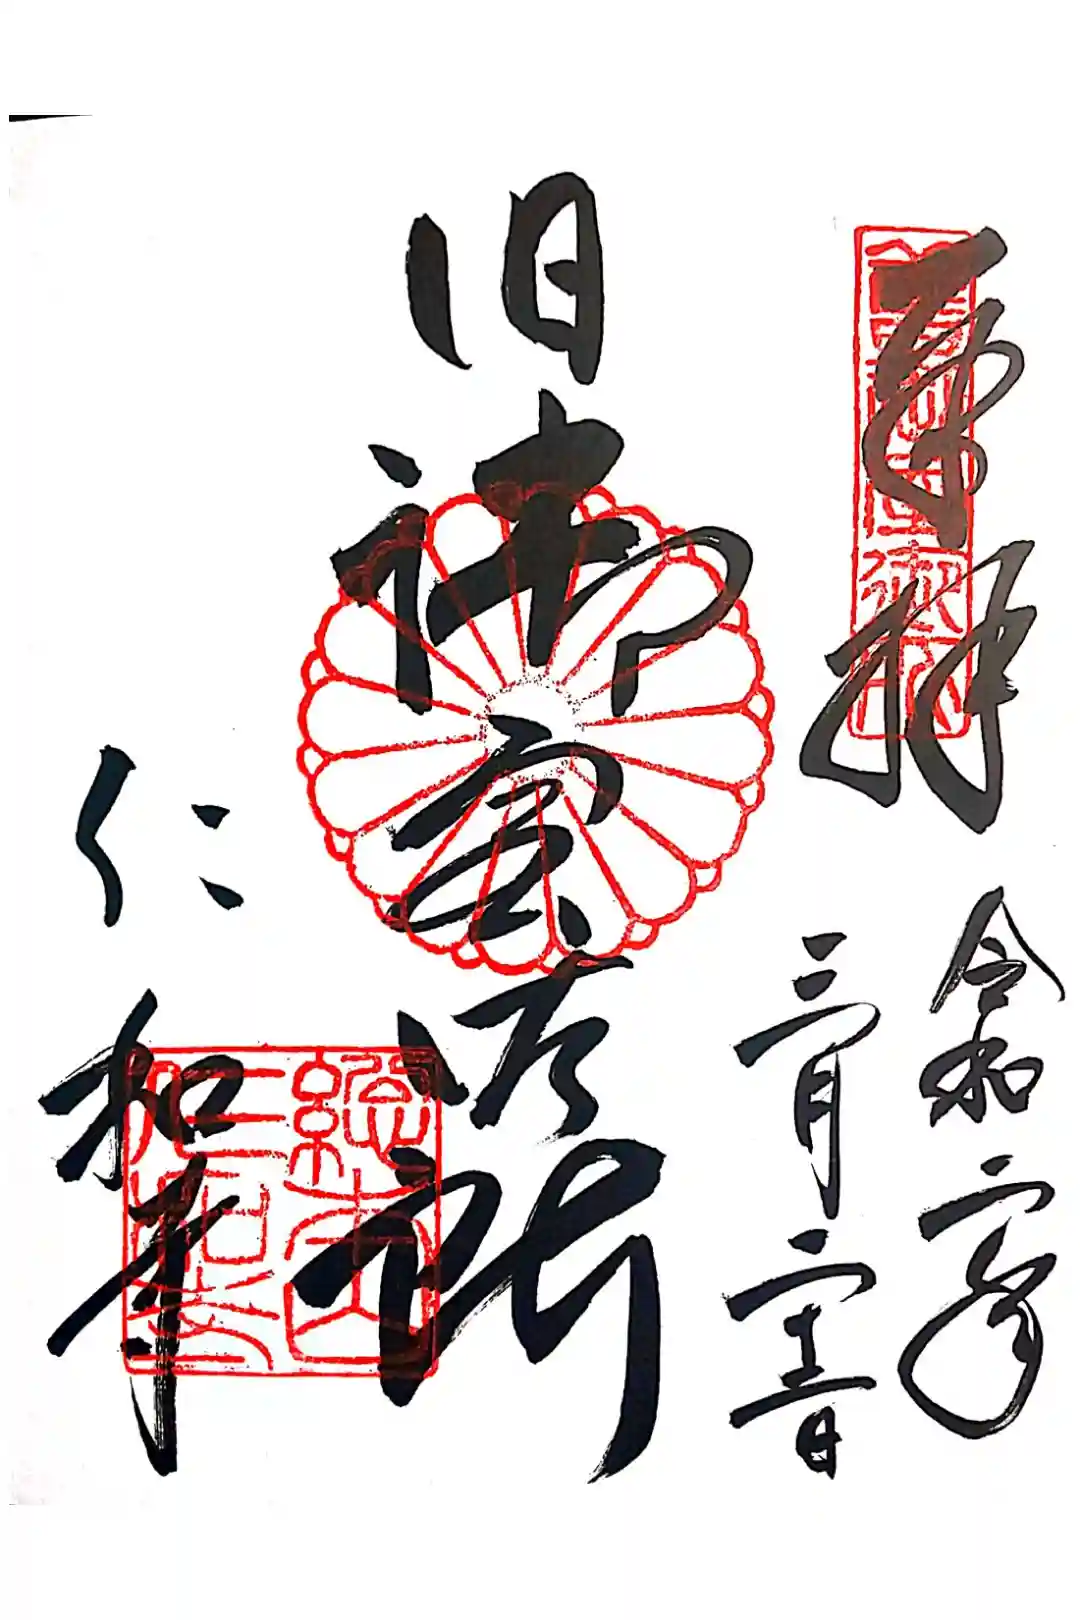 奉拝
令和二年
三月
旧御室御所
仁和寺
総本山
仁和寺